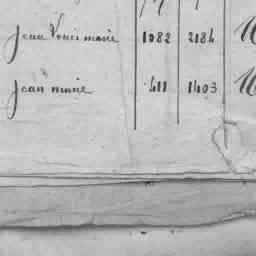 Jean Louis marie 1082 2184
Jean marie 411 1403